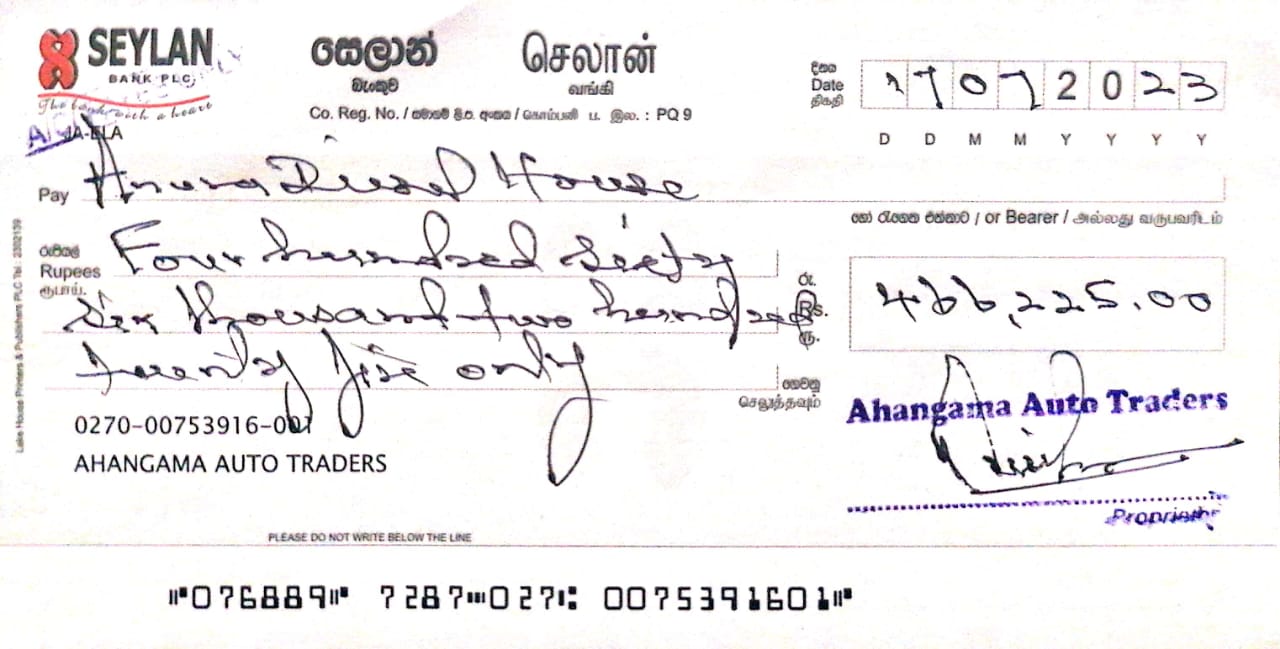 SEYLAN
BANK PLC
The bank with a heart
JA-ELA
සෙලාන්
බැංකුව
செலான்
வங்கி
Co. Reg. No. / සමාගම් ලි.ප. අංකය / கொம்பனி ப. இல. : PQ 9
දිනය
Date
திகதி
07 2023
D D M M Y Y Y Y
Pay Anura Diesel House
හෝ රැගෙන එන්නාට / or Bearer / அல்லது வருபவரிடம்
රුපියල්
Rupees
ரூபாய்.
Four hundred sixty
six thousand two hundred
twenty five only
රු.
Rs.
ரூ.
466,225.00
ගෙවනු
செலுத்தவும்
0270-00753916-001
AHANGAMA AUTO TRADERS
Ahangama Auto Traders
Proprietor
PLEASE DO NOT WRITE BELOW THE LINE
Lake House Printers & Publishers PLC Tel.: 2302139
⑈076889⑈ 7287⑉027⑆ 0075391601⑈